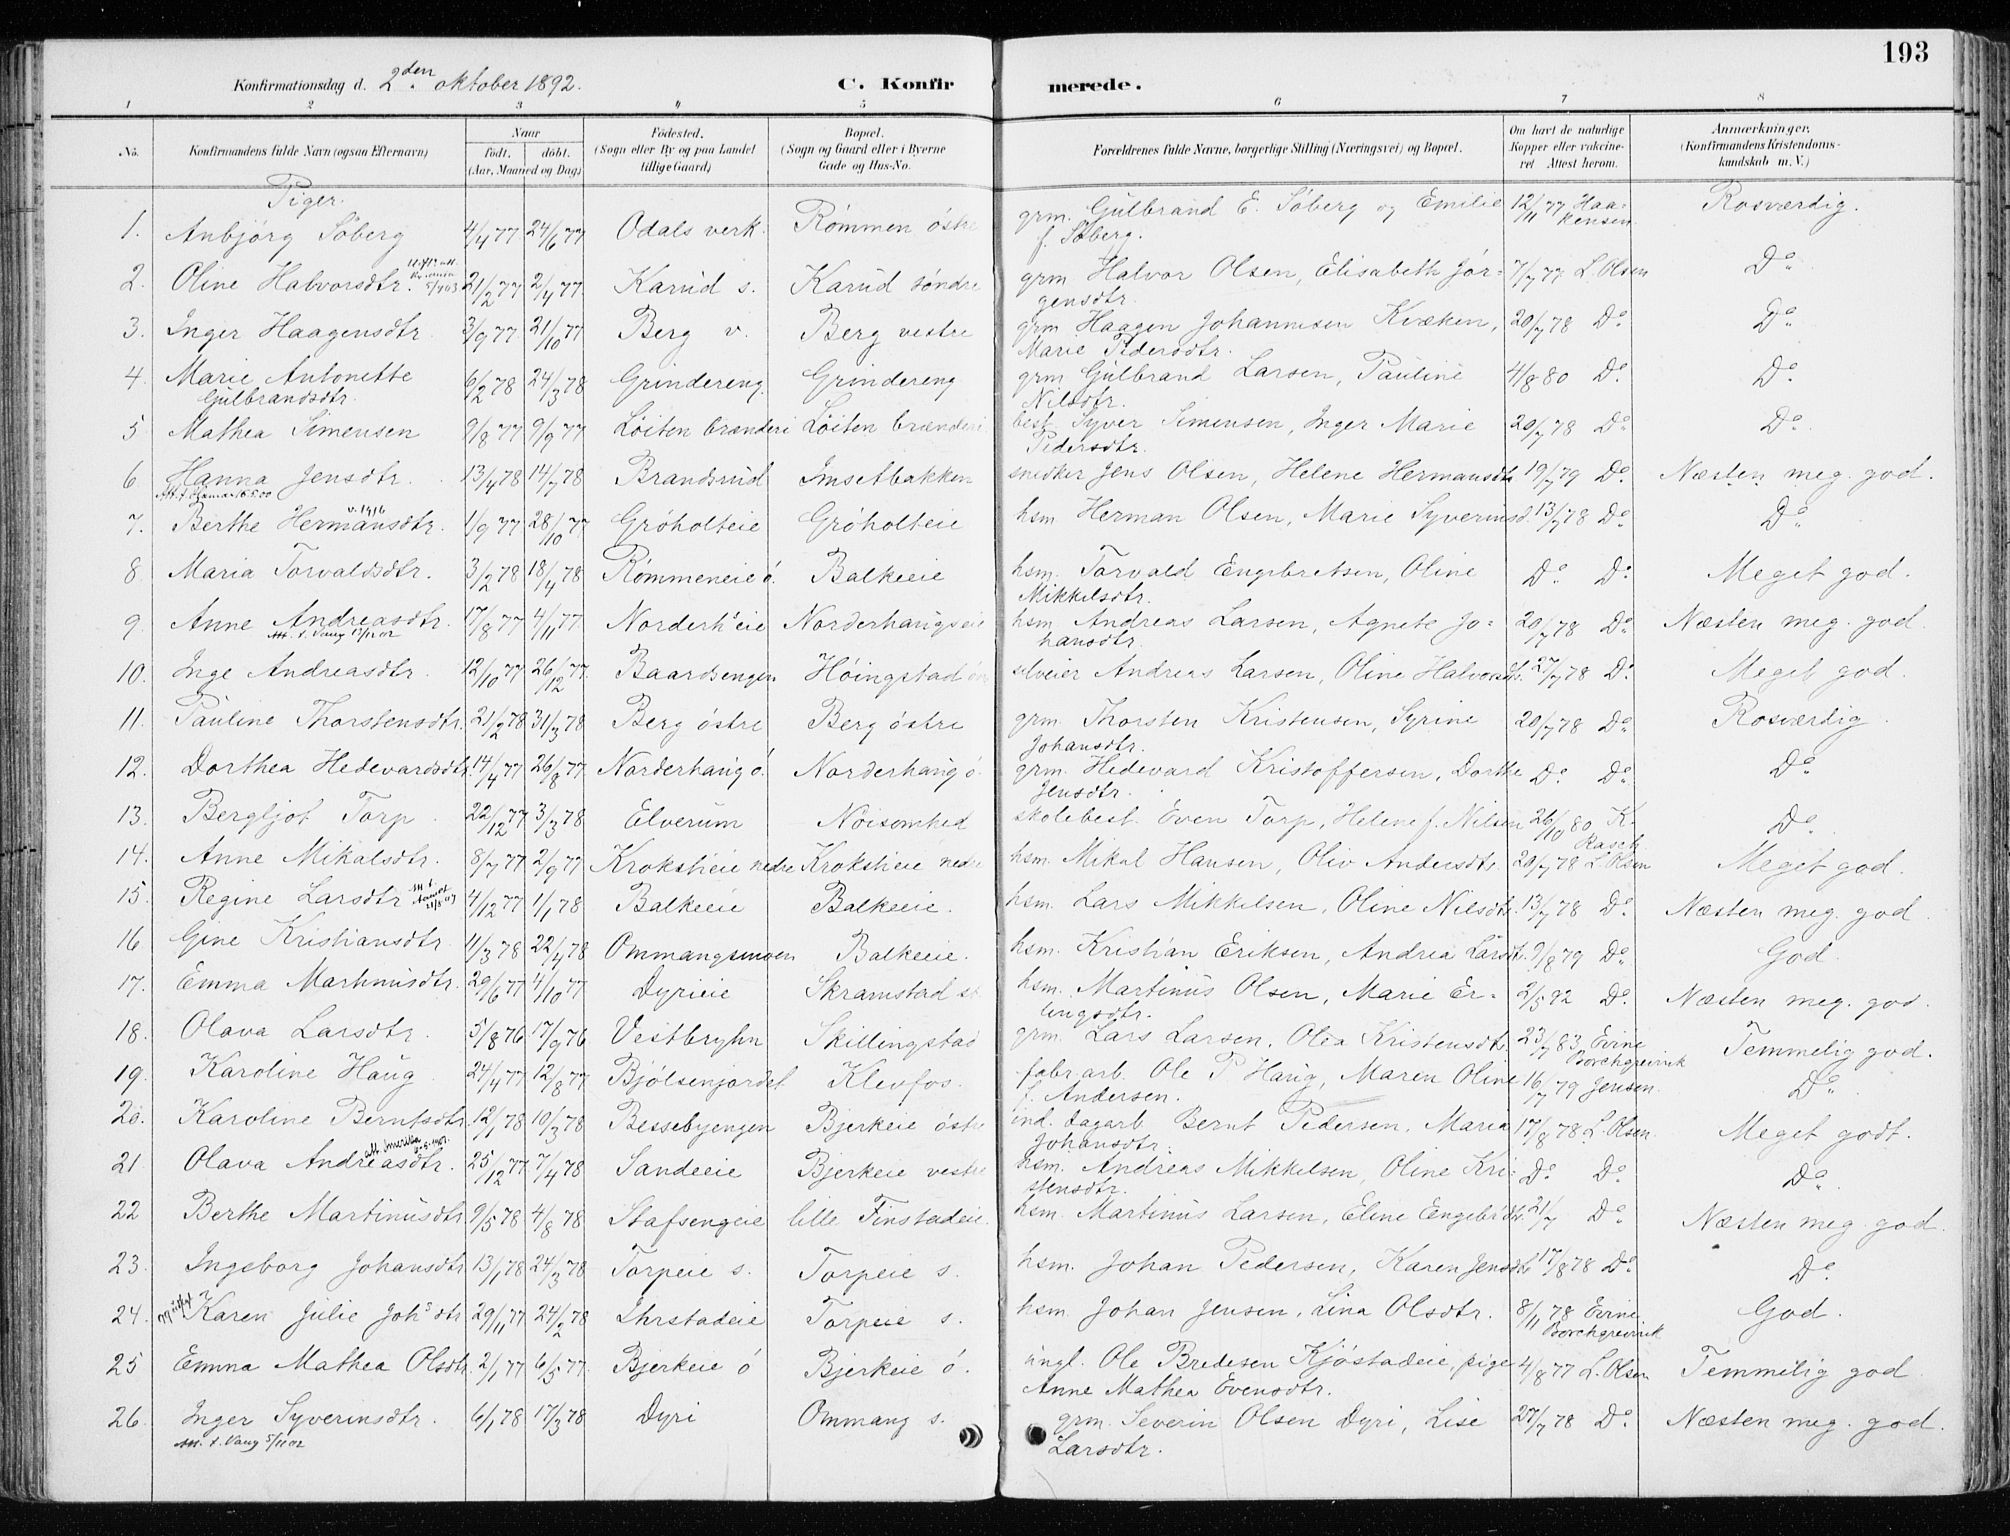 193
Konfirmationsdag d. 2den oktober 1892. C. Konfir merede.
1 2 3 4 5 6 7 8
No. Konfirmandens fulde Navn (ogsaa Efternavn) Naar født. døbt. (Aar, Maaned og Dag) Fødested. (Sogn eller By og paa Landet tillige Gaard) Bopæl. (Sogn og Gaard eller i Byerne Gade og Hus-No. Forældrenes fulde Navne, borgerlige Stilling (Næringsvei) og Bopæl. Om havt de naturlige Kopper eller vaccineret Attest herom. Anmærkninger. (Konfirmandens Kristendomskundskab m. V.)
Piger.
1. Anbjörg Söberg 4/4 77 24/6 77 Odals verk. Römmen östre grm. Gulbrand E. Söberg og Emilie f. Söberg. 12/11 77 Haakensen Rosværdig.
2. Oline Halvorsdtr. 21/2 77 2/4 77 Karud s. Karud söndre grm. Halvor Olsen, Elisabeth Jörgensdtr. 7/7 77 L. Olsen Do.
3. Inger Haagensdtr. 3/9 77 21/10 77 Berg v. Berg vestre grm Haagen Johannesen Kvæken, Marie Pedersdtr. 20/7 78 Do. Do
4. Marie Antonette Gulbrandsdtr. 6/2 78 24/3 78 Grindereng Grindereng grm. Gulbrand Larsen, Pauline Nilsdtr. 4/8 80 Do. Do.
5 Mathea Simensen 9/8 77 9/9 77 Löiten brænderi Löiten brænderi best. Syver Simensen, Inger Marie Pedersdtr. 20/7 78 Do. Do.
6 Hanna Jensdtr. 13/4 78 14/7 78 Brandsrud Imsetbakken snedker Jens Olsen, Helene Hermansdtr 19/7 79 Do. Næsten meg. god.
7. Berthe Hermansdtr. 1/9 77 28/10 77 Gröholteie Gröholteie hsm. Herman Olsen, Marie Syverinsd. 13/7 78 Do. Do.
8 Maria Torvaldsdtr. 3/2 78 18/4 78 Römmeneie ö. Balkeeie hsm. Torvald Engebretsen, Oline Mikkelsdtr. Do. Do. Meget god.
9. Anne Andreasdtr. 17/8 77 4/11 77 Norderh.eie Norderhaugseie hsm. Andreas Larsen, Agnete Johansdtr. 20/7 78 Do. Næsten meg. god.
att. t. Vang 13/11 02
10. Inge Andreasdtr. 12/10 77 26/12 77. Baardsengen Höingstad selveier Andreas Larsen, Oline Halvorsdtr. 27/7 78 Do. Meget god.
11. Pauline Thorstensdtr. 21/2 78 31/3 78 Berg östre Berg östre grm. Thorsten Kristensen, Syrine Johansdtr. 20/7 78 Do. Rosværdig.
12. Dorthea Hedevardsdtr. 14/4 77 26/8 77 Norderhaug ö. Norderhaug ö. grm. Hedevard Kristoffersen, Dorthe Jensdtr. Do. Do. Do.
13. Bergljot Torp. 22/12 77 3/3 78 Elverum Nöisomhed skolebest. Even Torp, Helene f. Nilsen 26/10 80 K. Rasch. Do.
14. Anne Mikalsdtr. 8/7 77 2/9 77 Kroksti eie nedre Kroksti eie nedre hsm. Mikal Hansen, Oliv Andersdtr. 20/7 78 L. Olsen Meget god.
15. Regine Larsdtr. 4/12 77 1/1 78 Balkeeie Balkeeie. hsm. Lars Mikkelsen, Oline Nilsdtr. 13/7 78 Do. Næsten meg. god.
16 Gine Kristiansdtr. 11/3 78 22/4 78 Ommangsmoen Balkeeie. hsm. Kristian Eriksen, Andrea Larsdtr. 9/8 79 Do. God.
17. Emma Martinusdtr. 29/6 77 4/10 77 Dyrieie Skramstad hsm. Martinus Olsen, Marie Erlingsdtr. 2/5 92 Do. Næsten meg. god.
18. Olava Larsdtr. 5/8 76 17/9 76 Vestbryhn Skillingstad grm. Lars Larsen, Olea Kristensdtr. 23/7 83 Evine Borchgrevink Temmelig god.
19. Karoline Haug 24/4 77 12/8 77 Bjölsenjordet Klevfos. fabr. arb. Ole P. Haug, Maren Oline f. Andersen. 16/7 79 Jensen. Do.
20. Karoline Berntsdtr. 12/1 78 10/3 78 Bessebyengen Bjerkeie östre ind. dagarb. Bernt Pedersen, Maria Johansdtr. 17/8 78 L. Olsen. Meget godt.
21 Olava Andreasdtr. 25/12 77 7/4 78 Sandeeie Bjerkeie vestre hsm. Andreas Mikkelsen, Oline Kristensdtr. Do. Do. Do.
22 Berthe Martinusdtr. 9/5 78 4/8 78 Stafsengeie lille Finstadeie. hsm. Martinus Larsen, Eline Engebrdtr. 21/7 Do. Næsten meg. god.
23. Ingeborg Johansdtr. 13/1 78 24/3 78 Torpeie s. Torpeie s. hsm. Johan Pedersen, Karen Jensdtr. 17/8 78 Do. Do.
24. Karen Julie Johsdtr 29/11 77 24/2 78 Ihrstadeie Torpeie s. hsm. Johan Jensen, Lina Olsdtr. 8/11 78 Evine Borchgrevink God.
25 Emma Mathea Olsdtr. 2/1 77 6/5 77. Bjerkeie ö Bjerkeie ö. ungk. Ole Bredesen Kjöstadeie, pige Anne Mathea Evensdtr. 4/8 77 L. Olsen Temmelig god.
26. Inger Syverinsdtr. 6/1 78 17/3 78 Dyri Ommang s. grm. Severin Olsen Dyri, Lise Larsdtr. 27/7 78 Do. Næsten meg. god.
att. t. Vang 5/11 02